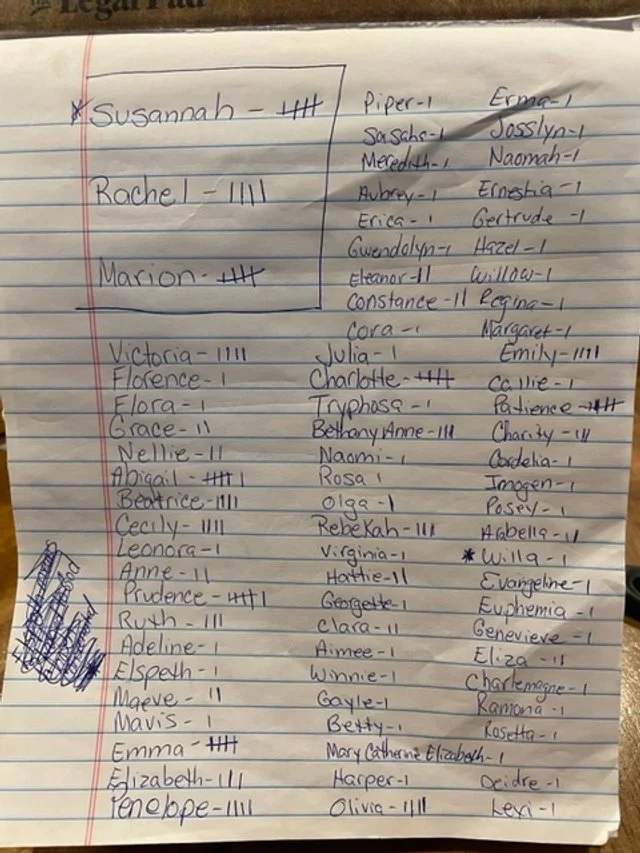 Legal Pad
*Susannah - 𝍸
Rachel - ||||
Marion - 𝍸
Piper - 1
Sasahs - 1
Meredith - 1
Aubrey - 1
Erica - 1
Gwendolyn - 1
Eleanor - ||
Constance - ||
Cora - 1
Erma - 1
Josslyn - 1
Naomah - 1
Ernestia - 1
Gertrude - 1
Hazel - 1
Willow - 1
Regina - 1
Margaret - 1
Victoria - ||||
Florence - 1
Flora - 1
Grace - ||
Nellie - ||
Abigail - 𝍸 |
Beatrice - ||||
Cecily - ||||
Leonora - 1
Anne - ||
Prudence - 𝍸 |
Ruth - |||
Adeline - 1
Elspeth - 1
Maeve - ||
Mavis - 1
Emma - 𝍸
Elizabeth - |||
Penelope - ||||
Julia - 1
Charlotte - 𝍸
Tryphosa - 1
Bethany Anne - |||
Naomi - 1
Rosa 1
Olga - 1
Rebekah - |||
Virginia - 1
Hattie - ||
Georgette - 1
Clara - ||
Aimee - 1
Winnie - 1
Gayle - 1
Betty - 1
Mary Catherine Elizabeth - 1
Harper - 1
Olivia - ||||
Emily - ||||
Callie - 1
Patience - 𝍸
Charity - |||
Cordelia - 1
Imogen - 1
Posey - 1
Arabella - ||
*Willa - 1
Evangeline - 1
Euphemia - 1
Genevieve - 1
Eliza - ||
Charlemagne - 1
Ramona - 1
Rosetta - 1
Deidre - 1
Lexi - 1